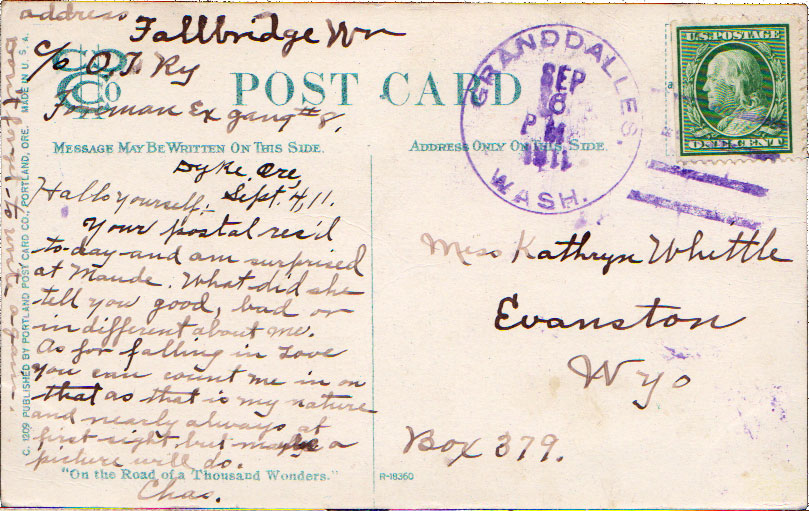 address
Fallbridge Wn
c/o O.T. Ry
Foreman Ex gang #8,
POST CARD
MESSAGE MAY BE WRITTEN ON THIS SIDE.
ADDRESS ONLY ON THIS SIDE
Dyke, Ore,
Sept. 4, 11.
Hallo yourself,
Your postal rec'd
to-day and am surprised
at Maude. What did she
tell you good, bad or
indifferent about me.
As for falling in Love
you can count me in on
that as that is my nature
and nearly always at
first sight but maybe a
picture will do.
Chas.
"On the Road of a Thousand Wonders."
C. 1209 PUBLISHED BY PORTLAND POST CARD CO., PORTLAND, ORE. MADE IN U. S. A.
GRANDDALLES,
WASH.
SEP
8
P M
1911
U.S. POSTAGE
ONE CENT
Miss Kathryn Whittle
Evanston
Wyo
Box 379.
R-18360